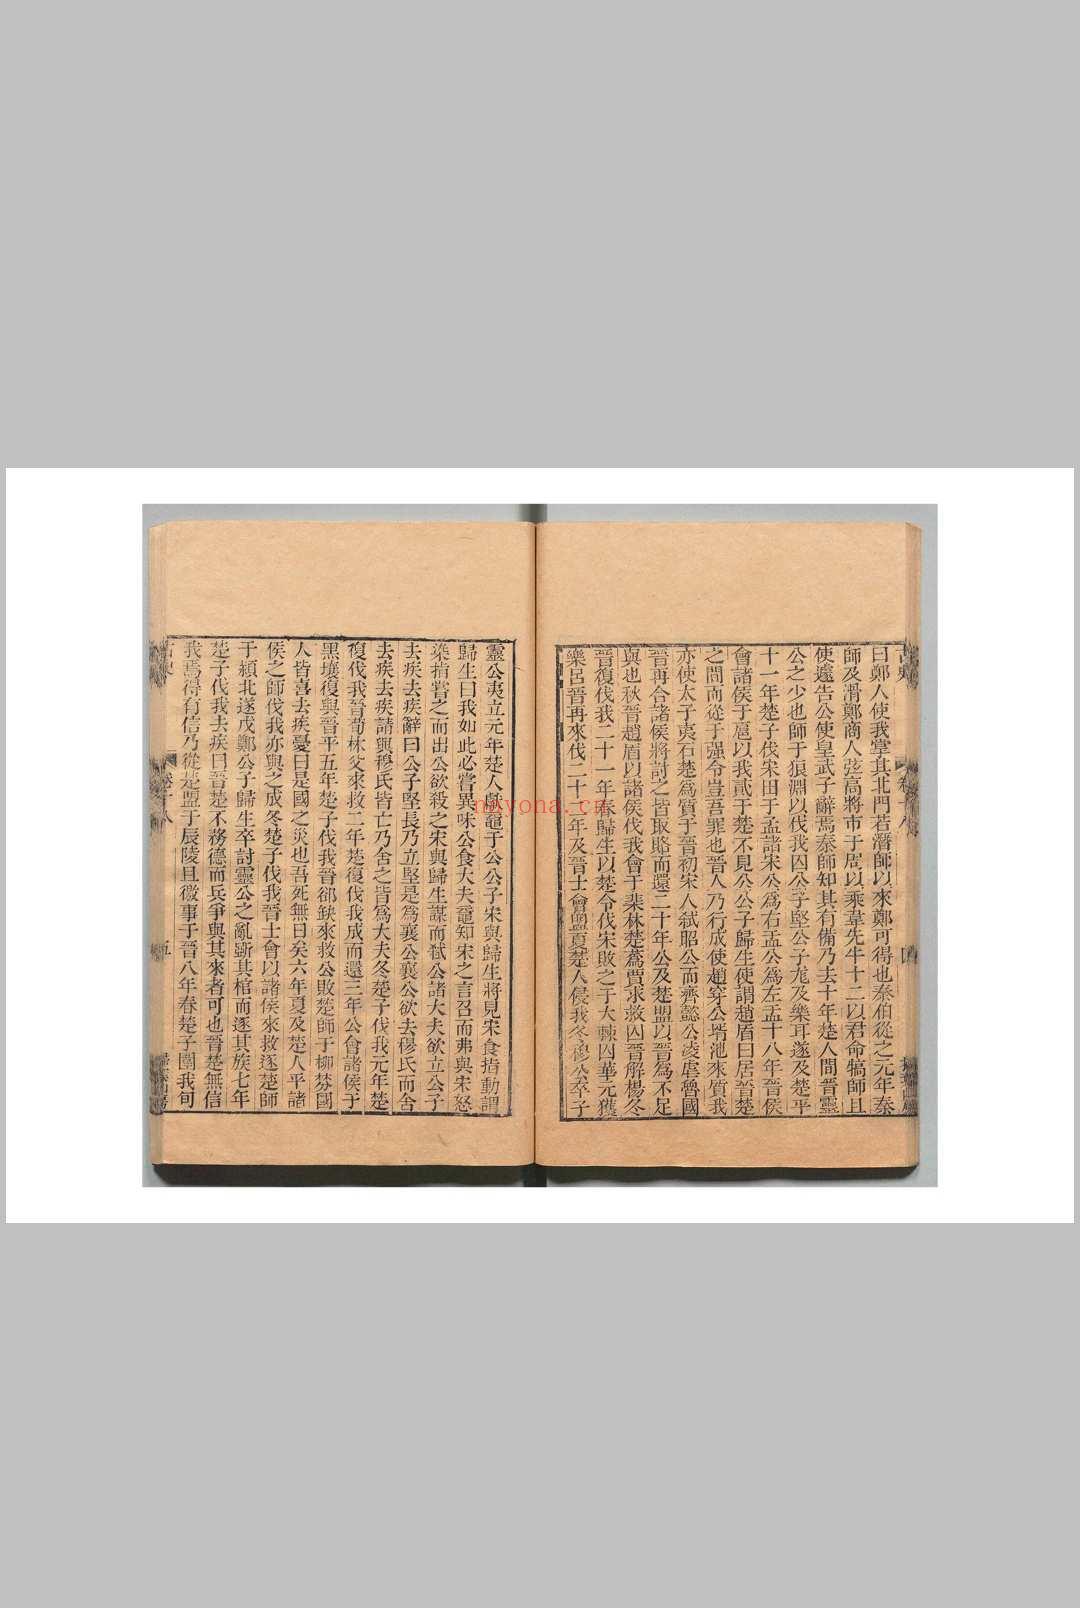 曰鄭人使我掌其北門若潛師以來鄭可得也秦伯從之元年秦
師及滑鄭商人弦高將市于周以乘韋先牛十二以君命犒師且
使遽告公使皇武子辭焉秦師知其有備乃去十年楚人間晉靈
公之少也師于狼淵以伐我囚公子堅公子尨及樂耳遂及楚平
十一年楚子伐宋田于孟諸宋公爲右盂公爲左盂十八年晉侯
會諸侯于扈以我貳于楚不見公公子歸生使謂趙盾曰居晉楚
之間而從于强令豈吾罪也晉人乃行成使趙穿公壻池來質我
亦使太子夷石楚爲質于晉初宋人弑昭公而齊懿公凌虐魯國
晉再合諸侯將討之皆取賂而還二十年公及楚盟以晉爲不足
與也秋晉趙盾以諸侯伐我會于棐林楚蔿賈求救囚晉解楊冬
晉復伐我二十一年春歸生以楚令伐宋敗之于大棘囚華元獲
樂呂晉再來伐二十二年及晉士會盟夏楚人侵我冬穆公卒子
靈公夷立元年楚人獻黿于公公子宋與歸生將見宋食指動謂
歸生曰我如此必嘗異味公食大夫黿知宋之言召而弗與宋怒
染指嘗之而出公欲殺之宋與歸生謀而弑公諸大夫欲立公子
去疾去疾辭曰公子堅長乃立堅是爲襄公襄公欲去穆氏而舍
去疾去疾請與穆氏皆亡乃舍之皆爲大夫冬楚子伐我元年楚
復伐我晉荀林父來救二年楚復伐我成而還三年公會諸侯于
黑壤復與晉平五年楚子伐我晉郤缺來救公敗楚師于柳棼國
人皆喜去疾憂曰是國之災也吾死無日矣六年夏及楚人平諸
侯之師伐我亦與之成冬楚子伐我晉士會以諸侯來救逐楚師
于潁北遂戍鄭公子歸生卒討靈公之亂斲其棺而逐其族七年
楚子伐我去疾曰晉楚不務德而兵爭與其來者可也晉楚無信
我焉得有信乃從楚盟于辰陵且徼事于晉八年春楚子圍我旬
古史
卷十八
五
nayona.cn